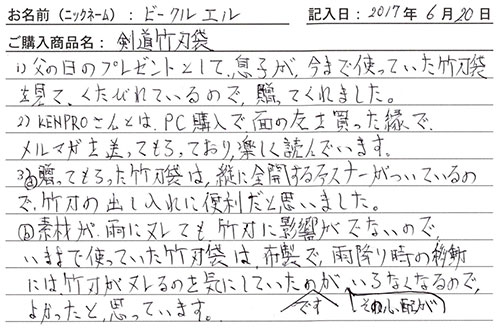 お名前（ニックネーム）：ビークル エル　記入日：2017年 6月 20日
ご購入商品名： 剣道竹刃袋
1) 父の日のプレゼントとして、息子が、今まで使っていた竹刃袋
を見て、くたびれているので、贈ってくれました。
2) KENPROさんとは、PC購入で面の左を買った縁で、
メルマガを送ってもらっており、楽しく読んでいます。
3) ⓐ贈ってもらった竹刃袋は、縦に全開するファスナーがついているの
で、竹刃の出し入れに便利だと思いました。
ⓑ素材が、雨にヌレても、竹刃に影響がでないので、
いままで使っていた竹刃袋は、布製で、雨降り時の移動
には竹刃がヌレるのを気にしていたのですが、その心配がいらなくなるので、
よかったと、思っています。